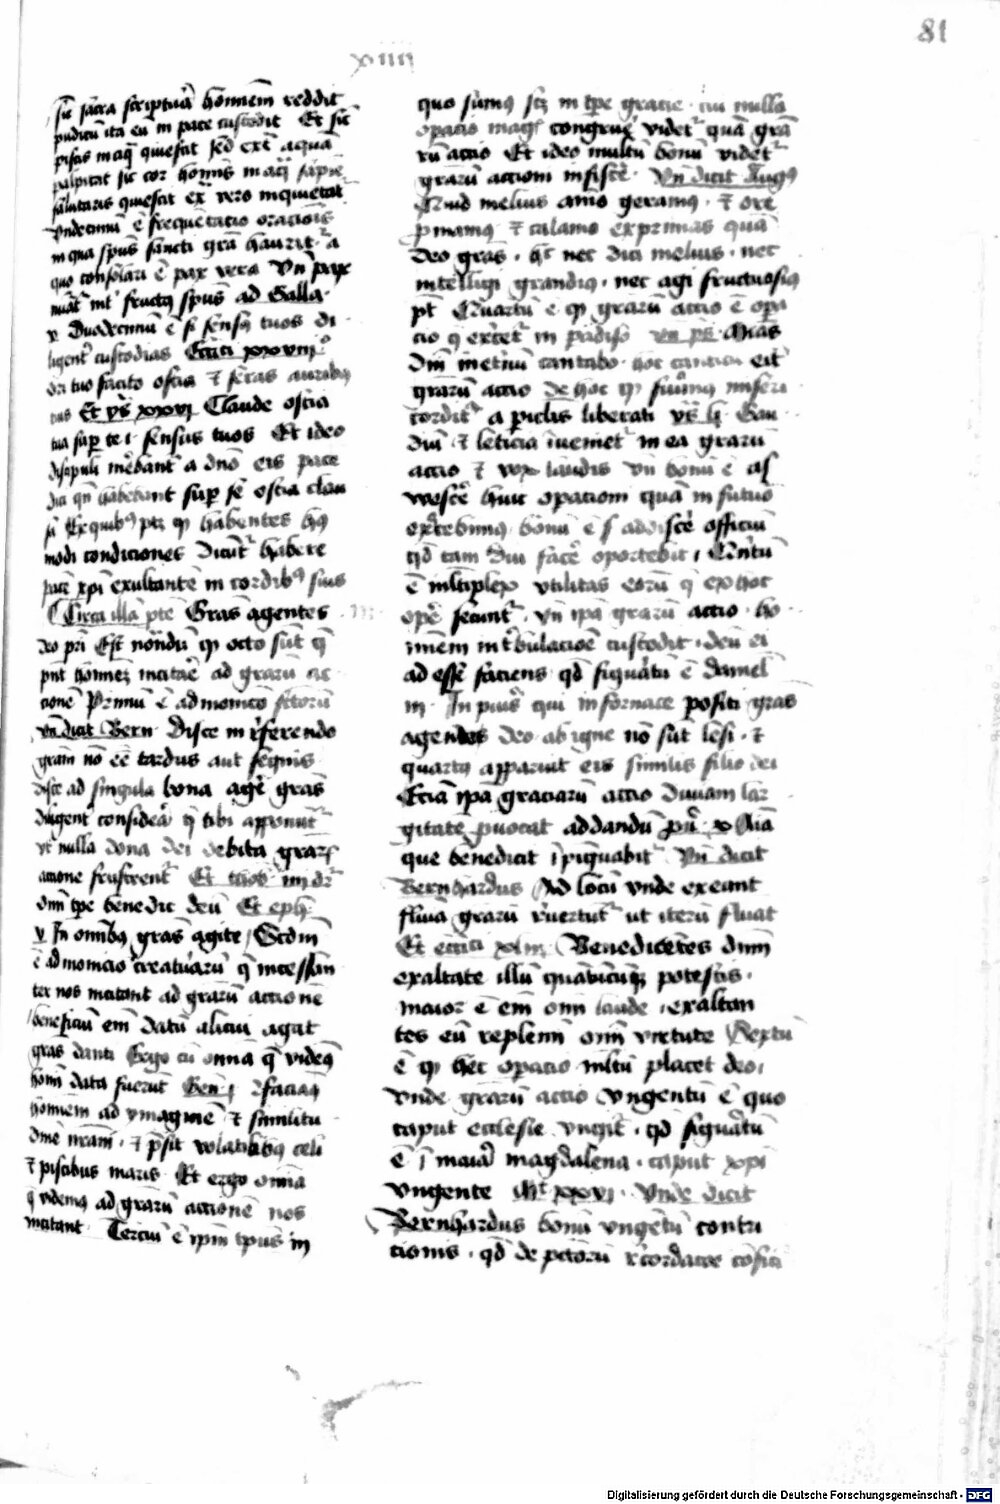 81
xiiii
sic sacra scriptura hominem reddit
pudicū ita eū in pace custodit Et sic
piscis in aq̄ quiescit sed ext̄ aquā
palpitat sic cor hoīs in aq̄
salutaris quiescit ex̄ vero inquietat̄
vndecimū ē frequētatio oratiōis
in qua spūs sancti grā haurit̄ a
quo consolari ē pax vera Vn̄ pax
fructꝯ spūs ad Galla
v Duodecimū ē si sensꝯ tuos di
ligent̄ custodias Eccͥci xxviij
ori tuo facito ostia ⁊ seras auribꝯ
tuis Et ys̄ xxvi Claude ostia
tua sup̄ te i sensus tuos Et ideo
discipuli a dn̄o eis pace
dici qn̄ habebant sup̄ se ostia clau
sa Ex quibꝯ ptꝫ ꝙ habentes hꝯ
modi condiciones dicūt̄ habere
pacē xpī exultantē in cordibꝯ suis
Circa illā ptē Gras agentes
deo pri Est nondū ꝙ octo sūt q̄
pn̄t hoīnes incitare ad grarū ac
tionē Primū ē admonicō sctorū
vn̄ dicit Bern Disce in referendo
gram nō eē tardus aut segnis
disce ad singula bona agē gras
diligent̄ considera q̄ tibi apponūt̄
vt nulla dona dei debita graꝝ
actione frustrent̄ Et thob iiij dr̄
om̄i tpe benedic deū Et eph
v In om̄ibꝯ gras agite Scdm
ē admonicio creaturarū q̄ incessan
ter nos incitant ad grarū actionē
beneficiū em̄ datū alicui agat
gras danti Ergo cū om̄ia q̄ videꝯ
homi data fuerūt Gen i faciaꝯ
hominem ad ymaginē ⁊ similitu
dinē nram ⁊ p̄sit volatilibꝯ celi
⁊ piscibus maris Et ergo om̄ia
q̄ videmꝯ ad grarū actionē nos
incitant Terciū ē ip̄m tp̄us in
quo sumꝯ scꝫ in tpe gracie cui nulla
opacio magꝭ congruē videt̄ quā gra
rū actio Et ideo multū bonū videt̄
grarū actioni insiste Vn̄ dicit Augꝯ
Quid melius animo geramꝯ ⁊ ore
p̄mamꝯ ⁊ calamo exprimas quā
deo gras hͨ nec dici melius nec
intelligi grandiꝯ nec agi fructuosiꝯ
pt̄ Quartū ē ꝙ grarū actio ē opa
cio q̄ exercet̄ in padiso vn̄ ps̄
Dm̄ metiū cantabo hoc canticū erit
grarū actio de hoc ꝙ sumꝯ miseri
cordit̄ a piclis liberati ys̄ lj Gau
diū ⁊ leticia iuēniet̄ in ea grarū
actio ⁊ vox laudis vn̄ bonū ē as
suescē huic opacioni quā in futuo
excebimꝯ bonū ē addiscē officiū
qd̄ tam diu facē oportebit Quītū
ē mltiplex vtilitas eorū q̄ ex hoc
ope secunt̄ vn̄ ipa grarū actio ho
minem in tbulacioē custodit deū ei
ad esse faciens qd̄ figuratū ē daniel
iij In puis̄ qui in fornace positi gras
agentes deo ab igne nō sūt lesi ⁊
quartꝯ apparuit eis similis filio dei
Etiā ipa graciarū actio diuinam lar
gitatē puocat ad dandū puͥ x Aīa
que benedicit īpiguabit̄ Vn̄ dicit
Bernhardus Ad locū vnde exeunt
flūia grarū reuertūt̄ ut iterū fluāt
Et eccͥci xliij Benedicētes dm̄
exaltate illū quātūcūqꝫ potestis
maior ē em̄ om̄i laude exaltan
tes eū replemi om̄i virtute Sextū
ē ꝙ hec opacio mltū placet deo
vnde grarū actio vngentū ē quo
caput ecclesie vngit̄ qd̄ figuratū
ē ī maia magdalena caput xpi
vngente Mt̄ xxvi Vnde dicit
Bernhardus bonū vngētū contri
tionis qd̄ de pctorū recordacōe cōfici
Digitalisierung gefördert durch die Deutsche Forschungsgemeinschaft - DFG